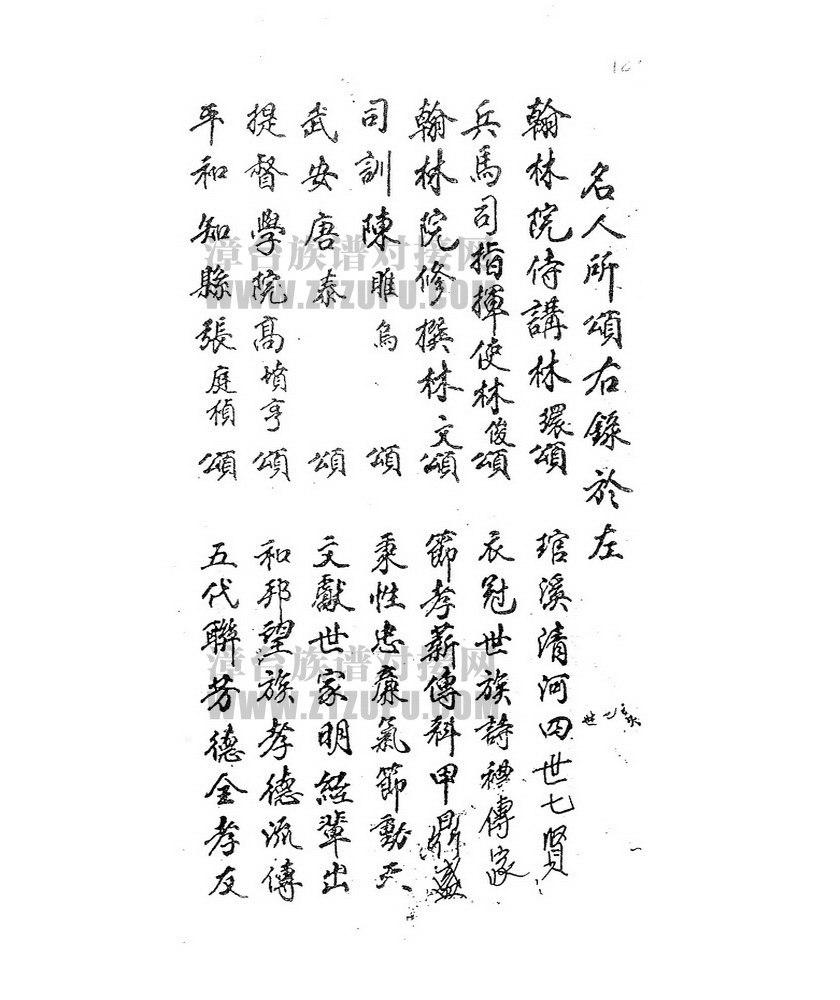 名人所頌右錄於左
翰林院侍講林環頌 琯溪清河四世七賢
兵馬司指揮使林俊頌 衣冠世族詩禮傳家
翰林院修撰林文頌 節孝薪傳科甲鼎盛
司訓陳睢烏頌 秉性忠廉氣節動天
武安唐泰頌 文獻世家明經輩出
提督學院高墳亨頌 和邦望族孝德流傳
平和知縣張庭楨頌 五代聯芳德全孝友
漳台族谱对接网
WWW.ZTZUPU.COM
漳台族谱对接网
WWW.ZTZUPU.COM